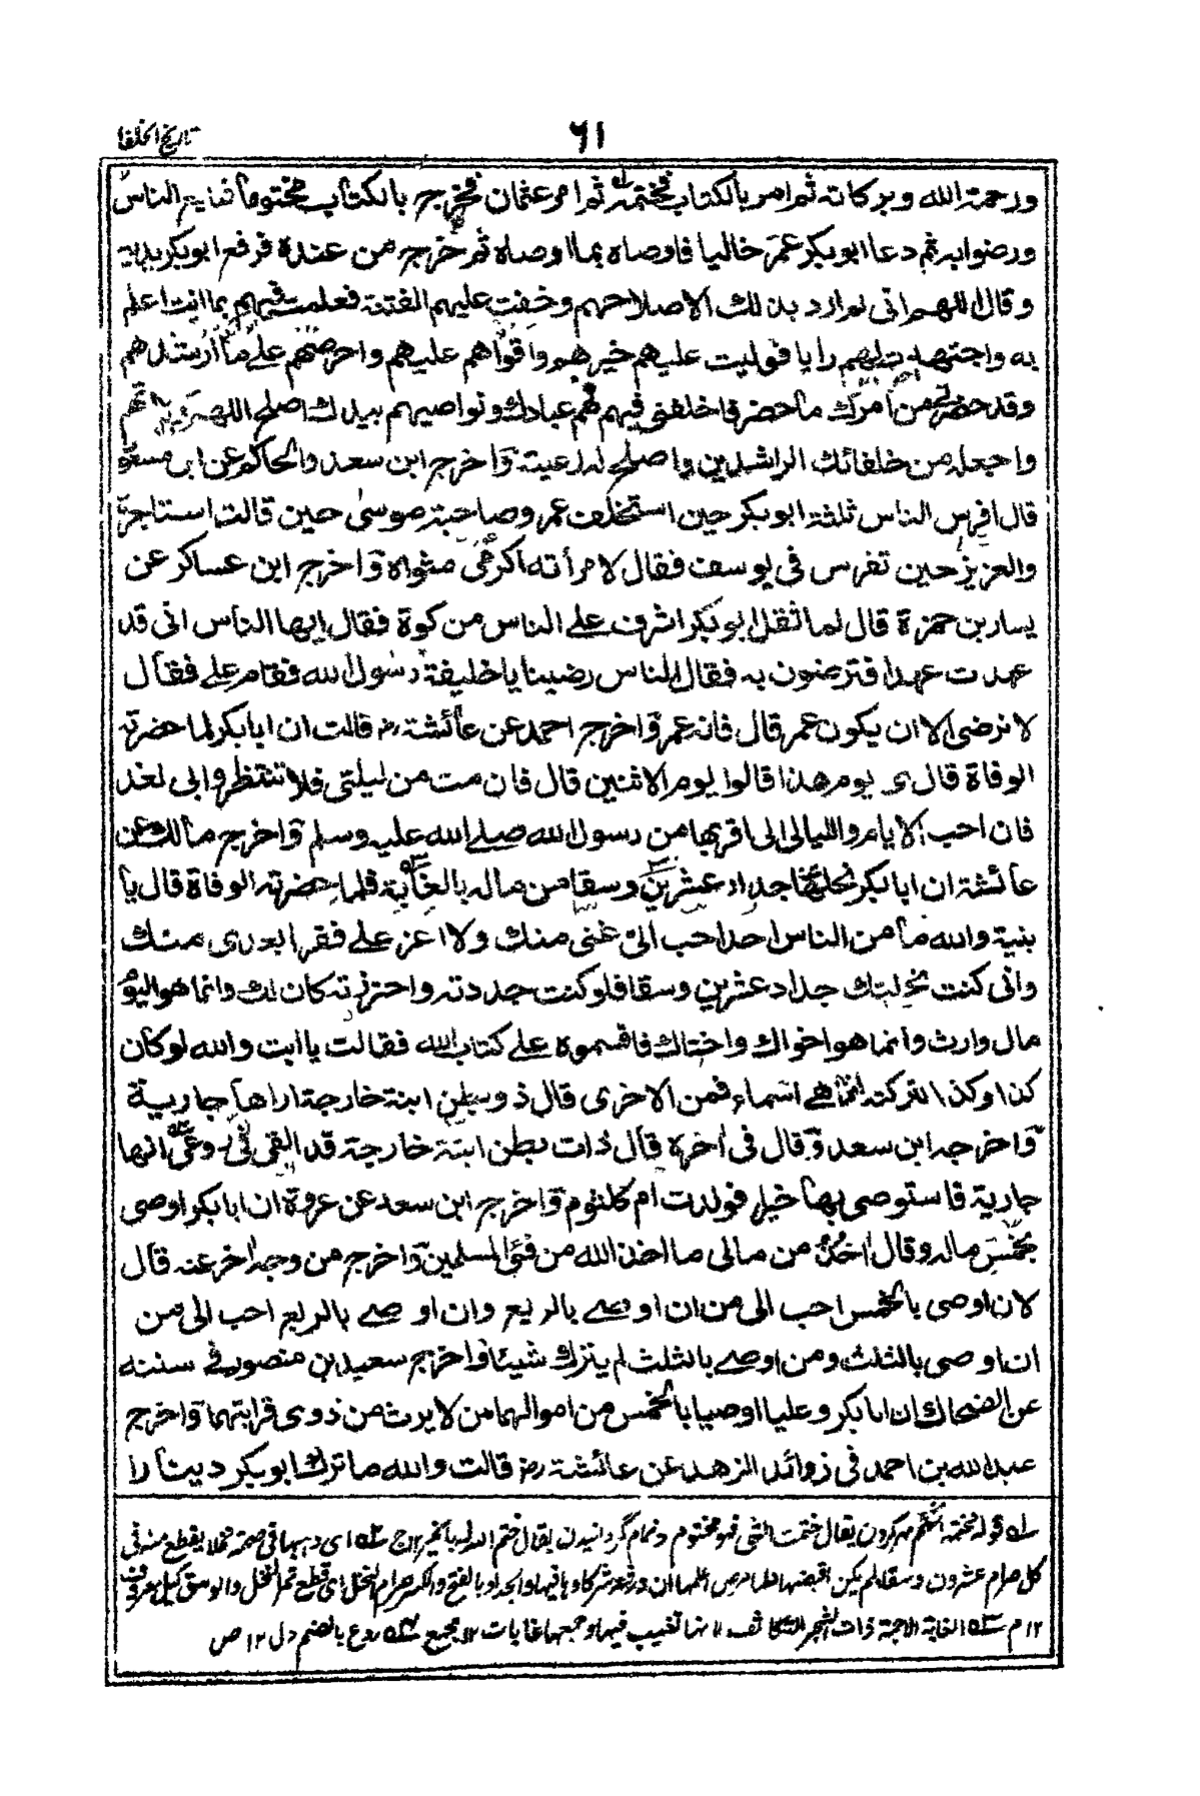 تاريخ الخلفا
٦١
ورحمة الله وبركاته ثم امر بالكتاب فختمه ثم امر عثمان فخرج بالكتاب مختوما فبايع الناس
ورضوا به ثم دعا ابو بكر عمر خاليا فاوصاه بما اوصاه ثم خرج من عنده فرفع ابو بكر يديه
وقال اللهم انى لم ارد بذلك الا صلاحهم وخفت عليهم الفتنة فعملت فيهم بما انت اعلم
به واجتهدت لهم رايا فوليت عليهم خيرهم واقواهم عليهم واحرصهم على ما ارشدهم
وقد حضرنى من امرك ما حضر فاخلفنى فيهم فهم عبادك ونواصيهم بيدك اصلح اللهم
واجعله من خلفائك الراشدين واصلح له رعيته واخرج ابن سعد والحاكم عن ابن مسعود
قال افرس الناس ثلثة ابو بكر حين استخلف عمر وصاحبة موسى حين قالت استاجره
والعزيز حين تفرس فى يوسف فقال لامرأته اكرمى مثواه واخرج ابن عساكر عن
يسار بن حمزة قال لما ثقل ابو بكر اشرف على الناس من كوة فقال ايها الناس انى قد
عهدت عهدا افترضون به فقال الناس رضينا يا خليفة رسول الله فقام على فقال
لا نرضى الا ان يكون عمر قال فانه عمر واخرج احمد عن عائشة رض قالت ان ابا بكر لما حضرته
الوفاة قال اى يوم هذا قالوا يوم الاثنين قال فان مت من ليلتى فلا تنتظروا بى لغد
فان احب الايام والليالى الى اقربها من رسول الله صلى الله عليه وسلم واخرج مالك عن
عائشة ان ابا بكر نحلها جداد عشرين وسقا من ماله بالغابة فلما حضرته الوفاة قال يا
بنية والله ما من الناس احد احب الى غنى منك ولا اعز على فقرا بعدى منك
وانى كنت نحلتك جداد عشرين وسقا فلو كنت جددته واحترزته كان لك وانما هو اليوم
مال وارث وانما هو اخواك واختاك فاقسموه على كتاب الله فقالت يا ابت والله لو كان
كذا وكذا لتركته انما هى اسماء فمن الاخرى قال ذو بطن ابنة خارجة اراها جارية
واخرجه ابن سعد وقال فى اخره قال ذات بطن ابنة خارجة قد القى فى روعى انها
جارية فاستوصى بها خيرا فولدت ام كلثوم واخرج ابن سعد عن عروة ان ابا بكر اوصى
بخمس ماله وقال اخذ من مالى ما اخذ الله من فئ المسلمين واخرج من وجه اخر عنه قال
لان اوصى بالخمس احب الى من ان اوصى بالربع وان اوصى بالربع احب الى من
ان اوصى بالثلث ومن اوصى بالثلث لم يترك شيئا واخرج سعيد بن منصور فى سننه
عن الضحاك ان ابا بكر وعليا اوصيا بالخمس من اموالهما من لا يرث من ذوى قرابتهما واخرج
عبد الله بن احمد فى زوائد الزهد عن عائشة رض قالت والله ما ترك ابو بكر دينارا
قوله فختمه الختم مهر كردن يقال ختمت الشى فهو مختوم وتمام گردانيدن يقال ختم الله له بالخير اى وهبها فى صحته نخلا يقطع منه فى
كل صرام عشرون وسقا لم يكن اقبضها والجداد بالفتح والكسر صرام النخل اى قطع ثمر النخل والوسق كيل معروف
١٢ م الغابة الاجمة ذات الشجر المتكاثف لانها تغيب فيها وجمعها غابات ١٢ مجمع روع بالضم دل ١٢ ص